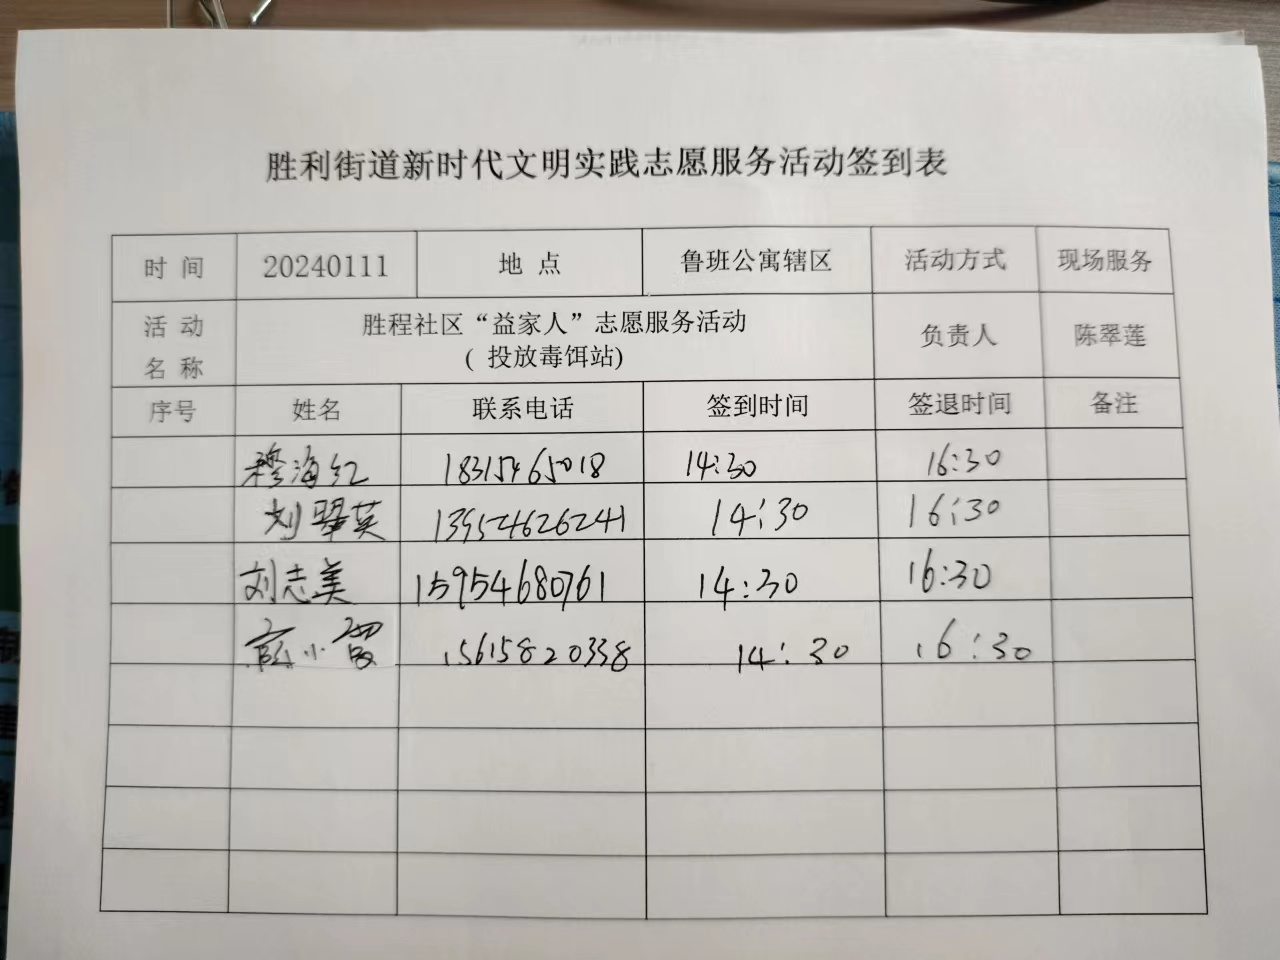 胜利街道新时代文明实践志愿服务活动签到表
时 间 20240111 地 点 鲁班公寓辖区 活动方式 现场服务
活 动 名 称 胜程社区“益家人”志愿服务活动 负责人 陈翠莲
( 投放毒饵站)
序号 姓名 联系电话 签到时间 签退时间 备注
穆海红 18315465018 14:30 16:30
刘翠英 13954626241 14:30 16:30
刘志美 15954680761 14:30 16:30
小霞 15615820338 14:30 16:30